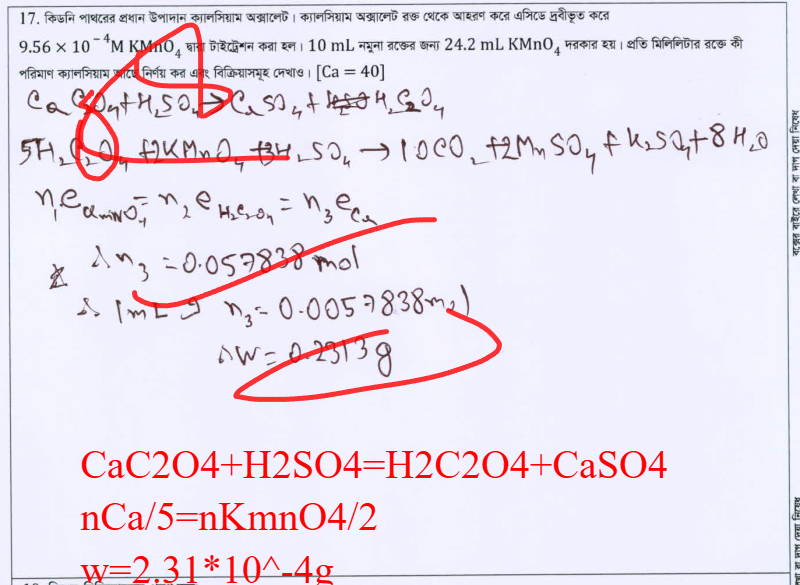 17. কিডনি পাথরের প্রধান উপাদান ক্যালসিয়াম অক্সালেট। ক্যালসিয়াম অক্সালেট রক্ত থেকে আহরণ করে এসিডে দ্রবীভূত করে
9.56 × 10⁻⁴M KMnO₄ দ্বারা টাইট্রেশন করা হল। 10 mL নমুনা রক্তের জন্য 24.2 mL KMnO₄ দরকার হয়। প্রতি মিলিলিটার রক্তে কী
পরিমাণ ক্যালসিয়াম আছে নির্ণয় কর এবং বিক্রিয়াসমূহ দেখাও। [Ca = 40]
CaC₂O₄+H₂SO₄→CaSO₄+H₂C₂O₄
5H₂C₂O₄+2KMnO₄+3H₂SO₄→10CO₂+2MnSO₄+K₂SO₄+8H₂O
n₁e = n₂e H₂C₂O₄ = n₃e Ca
n₃ = 0.057838 mol
1mL n₃ = 0.0057838 mol
W = 0.2313 g
CaC2O4+H2SO4=H2C2O4+CaSO4
nCa/5=nKmnO4/2
w=2.31*10^-4g
বক্সের বাইরে লেখা বা দাগ দেয়া নিষেধ